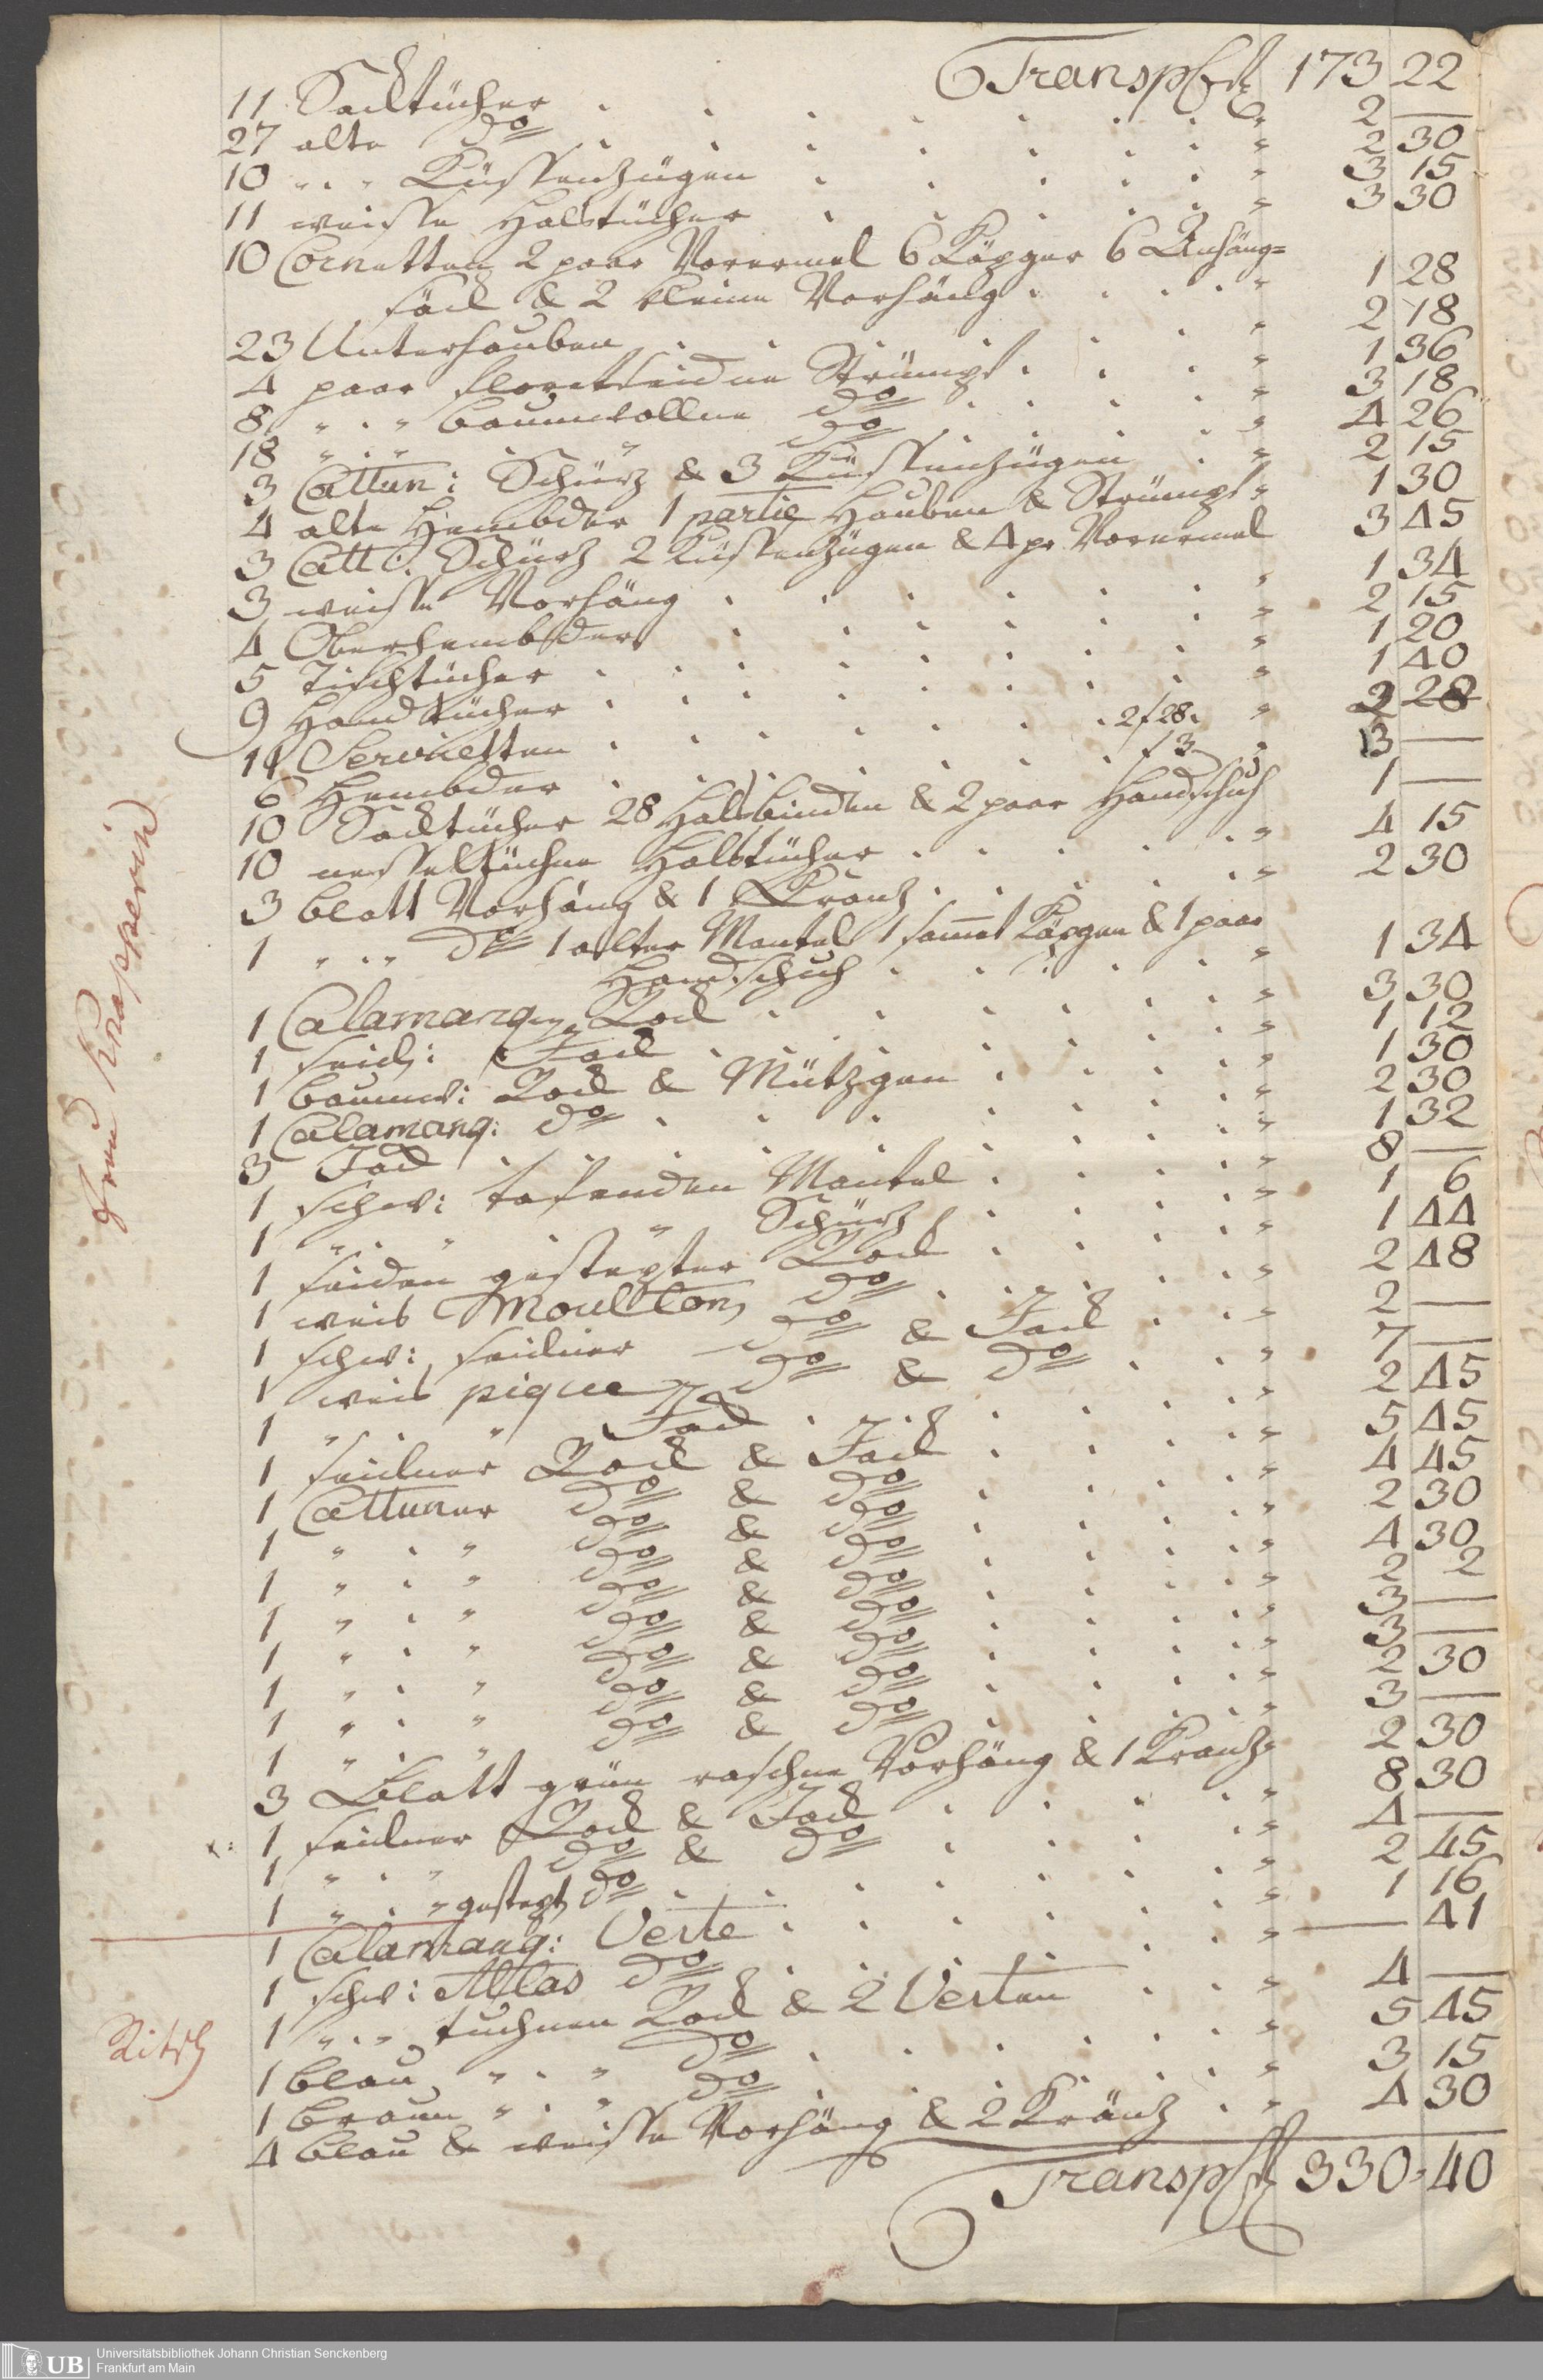 Transpf 173 22
11 Sacktücher . . . . . . . 2 —
27 alte do . . . . . . " 2 30
10 " . " Küssenzügen . . . . . " 3 15
11 weisse Halstücher . . . . . " 3 30
10 Cornetten 2 paar Vorermel 6 Käpger 6 Anhäng=
säck & 2 kleine Vorhäng . . . . " 1 28
23 Unterhauben . . . . . . " 2 18
4 paar floretseidne Strümpf . . . " 1 36
8 " . " baumwollne do . . . . " 3 18
18 " . " . " do . . . . " 4 26
3 Cattun: Schürz & 3 Küssenzügen . " 2 15
4 alte Hembder 1 partie Hauben & Strümpf " 1 30
3 Catt: Schürz 2 Küssenzügen & 4 pr Vorermel 3 45
3 weisse Vorhäng . . . . . . " 1 34
4 Oberhembder . . . . . . " 2 15
5 Tischtücher . . . . . . . " 1 20
9 Handtücher . . . . . . . " 1 40
11 Servietten . . . . . . 2f 28. " 2 28
6 Hembder . . . . . . f 3 — " 3 —
10 Sacktücher 28 Halsbinden & 2 paar Handschuh 1 —
10 nesseltüchne Halstücher . . . . . " 4 15
3 blatt Vorhäng & 1 Kranz . . . . . " 2 30
1 " . " do 1 alter Mantel 1 samt Käpgen & 1 paar
Handschuh . . . . . " 1 34
1 Calamanq Rock . . . . . " 3 30
1 seid: Jack . . . . . . " 1 12
1 baumw: Rock & Mützgen . . . . " 1 30
1 Calamanq: do . . . . . . " 2 30
3 Jack . . . . . . . " 1 32
1 schw: tafenden Mantel . . . . " 8 —
1 " . " . " Schürz . . . . " 1 6
1 seiden gestepter Rock . . . . " 1 44
1 weis Moulton do . . . . . " 2 48
1 schw: seidner do & Jack . . " 2 —
1 weis pique do & do . . " 7 —
1 " . " Jack . . . . . " 2 45
1 seidner Rock & Jack . . . . " 5 45
1 Cattuner do & do . . . . " 4 45
1 " . " do & do . . . . " 2 30
1 " . " do & do . . . . " 4 30
1 " . " do & do . . . . " 2 2
1 " . " do & do . . . . " 3 —
1 " . " do & do . . . . " 3 —
1 " . " do & do . . . . " 2 30
1 " . " do & do . . . . " 3 —
3 Blatt grün raschne Vorhäng & 1 Kranz " 2 30
1 seidner Rock & Jack . . . . " 8 30
1 " . " do & do . . . . " 4 —
1 " . " gestept do . . . . . " 2 45
1 Calamanq: Veste . . . . . " 1 16
1 schw: Atlas do . . . . . " — 41
1 " . " tuchnen Rock & 2 Vesten . . " 4 —
1 blau " . " do . . . . . " 5 45
1 braun " . " do . . . . . " 3 15
4 blau & weisse Vorhäng & 2 Kränz . " 4 30
Transpf 330 " 40
Frau Knapperin
Ritsch
UB
Universitätsbibliothek Johann Christian Senckenberg
Frankfurt am Main